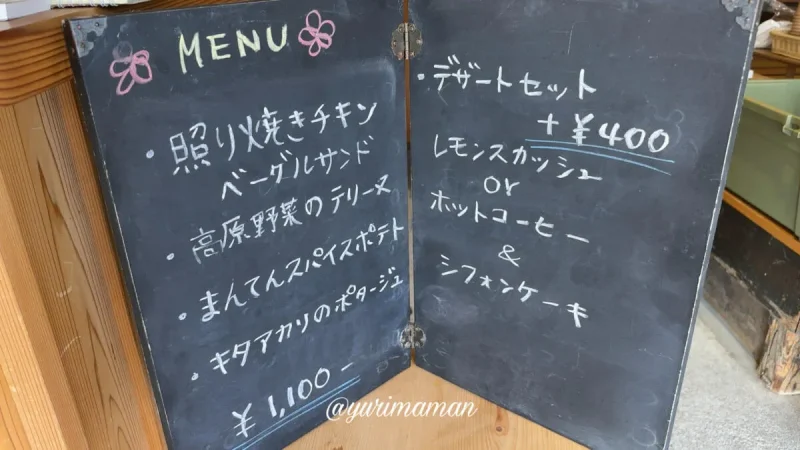 MENU
・照り焼きチキン
ベーグルサンド
・高原野菜のテリーヌ
・まんてんスパイスポテト
・キタアカリのポタージュ
¥1,100-
・デザートセット
+¥400
レモンスカッシュ
or
ホットコーヒー
&
シフォンケーキ
@yurimaman